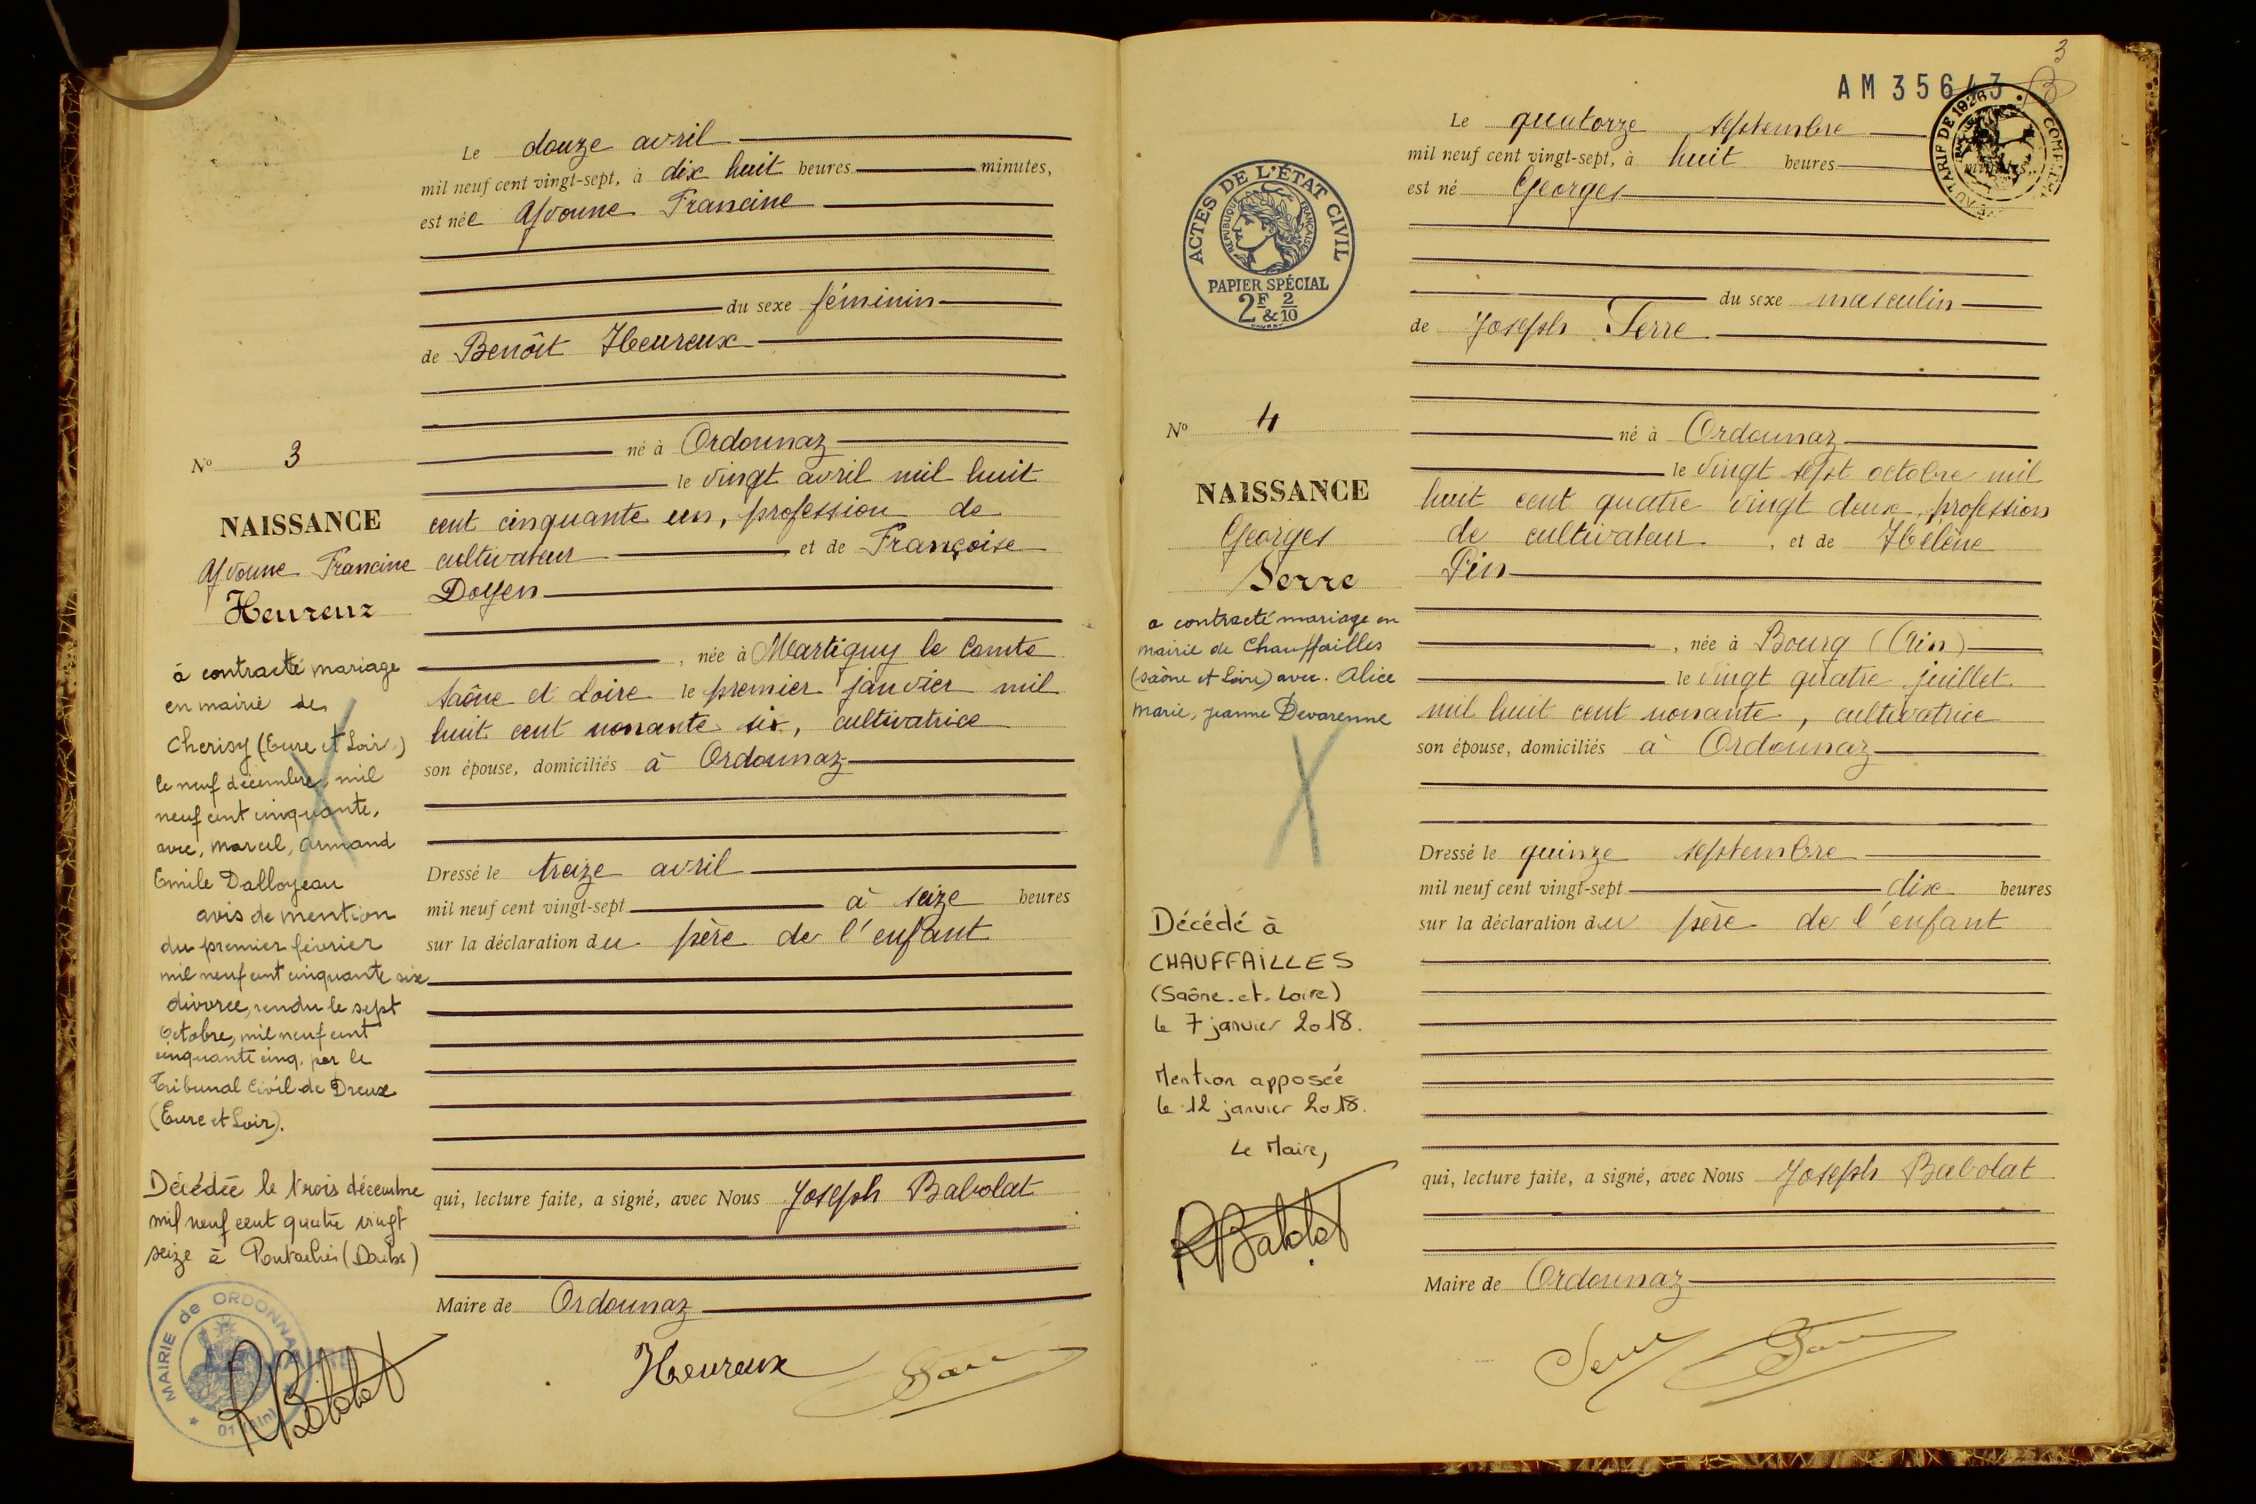 Le douze avril
mil neuf cent vingt-sept, à dix huit heures minutes,
est née Yvonne Francine
du sexe féminin
de Benôit Heureux
né à Ordonnaz
le vingt avril mil huit
cent cinquante un, profession de
cultivateur et de Françoise
Doyen
, née à Martigny le Comte
Saône et Loire le premier janvier mil
huit cent nonante six, cultivatrice
son épouse, domiciliés à Ordonnaz
Dressé le treize avril
mil neuf cent vingt-sept à seize heures
sur la déclaration du père de l'enfant
qui, lecture faite, a signé, avec Nous Joseph Babolat
Maire de Ordonnaz
Heureux
No 3
NAISSANCE
Yvonne Francine
Heureux
à contracté mariage
en mairie de
Cherisy (Eure et Loir)
le neuf décembre, mil
neuf cent cinquante,
avec, Marcel, Armand
Emile Dalloyeau
avis de mention
du premier février
mil neuf cent cinquante six
divorce, rendu le sept
Octobre, mil neuf cent
cinquante cinq, par le
Tribunal Civil de Dreux
(Eure et Loir).
Décédée le trois décembre
mil neuf cent quatre vingt
seize à Pontarlier (Doubs)
MAIRIE de ORDONNAZ
RBabolat
3
AM 35643
TARIF DE 1926
Le quatorze septembre
mil neuf cent vingt-sept, à huit heures minutes,
est né Georges
du sexe masculin
de Joseph Serre
né à Ordonnaz
le vingt sept octobre mil
huit cent quatre vingt deux, profession
de cultivateur , et de Hélène
Pin
, née à Bourg (Ain)
le vingt quatre juillet
mil huit cent nonante, cultivatrice
son épouse, domiciliés à Ordonnaz
Dressé le quinze septembre
mil neuf cent vingt-sept dix heures
sur la déclaration du père de l'enfant
qui, lecture faite, a signé, avec Nous Joseph Babolat
Maire de Ordonnaz
Serre
ACTES DE L'ÉTAT CIVIL
RÉPUBLIQUE FRANÇAISE
PAPIER SPÉCIAL
2F & 2/10
No 4
NAISSANCE
Georges
Serre
a contracté mariage en
mairie de Chauffailles
(Saône et Loire) avec Alice
Marie, Jeanne Devarenne
Décédé à
CHAUFFAILLES
(Saône-et-Loire)
le 7 janvier 2018.
Mention apposée
le 12 janvier 2018.
Le Maire,
RBabolat